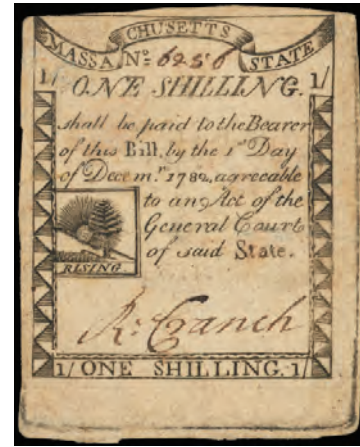 MASSACHUSETTS STATE
No. 6256
1/ ONE SHILLING. 1/
shall be paid to the Bearer
of this Bill, by the 1st Day
of Decem.r 1782, agreeable
to an Act of the
General Court
of said State.
RISING
R: Cranch
1/ ONE SHILLING. 1/